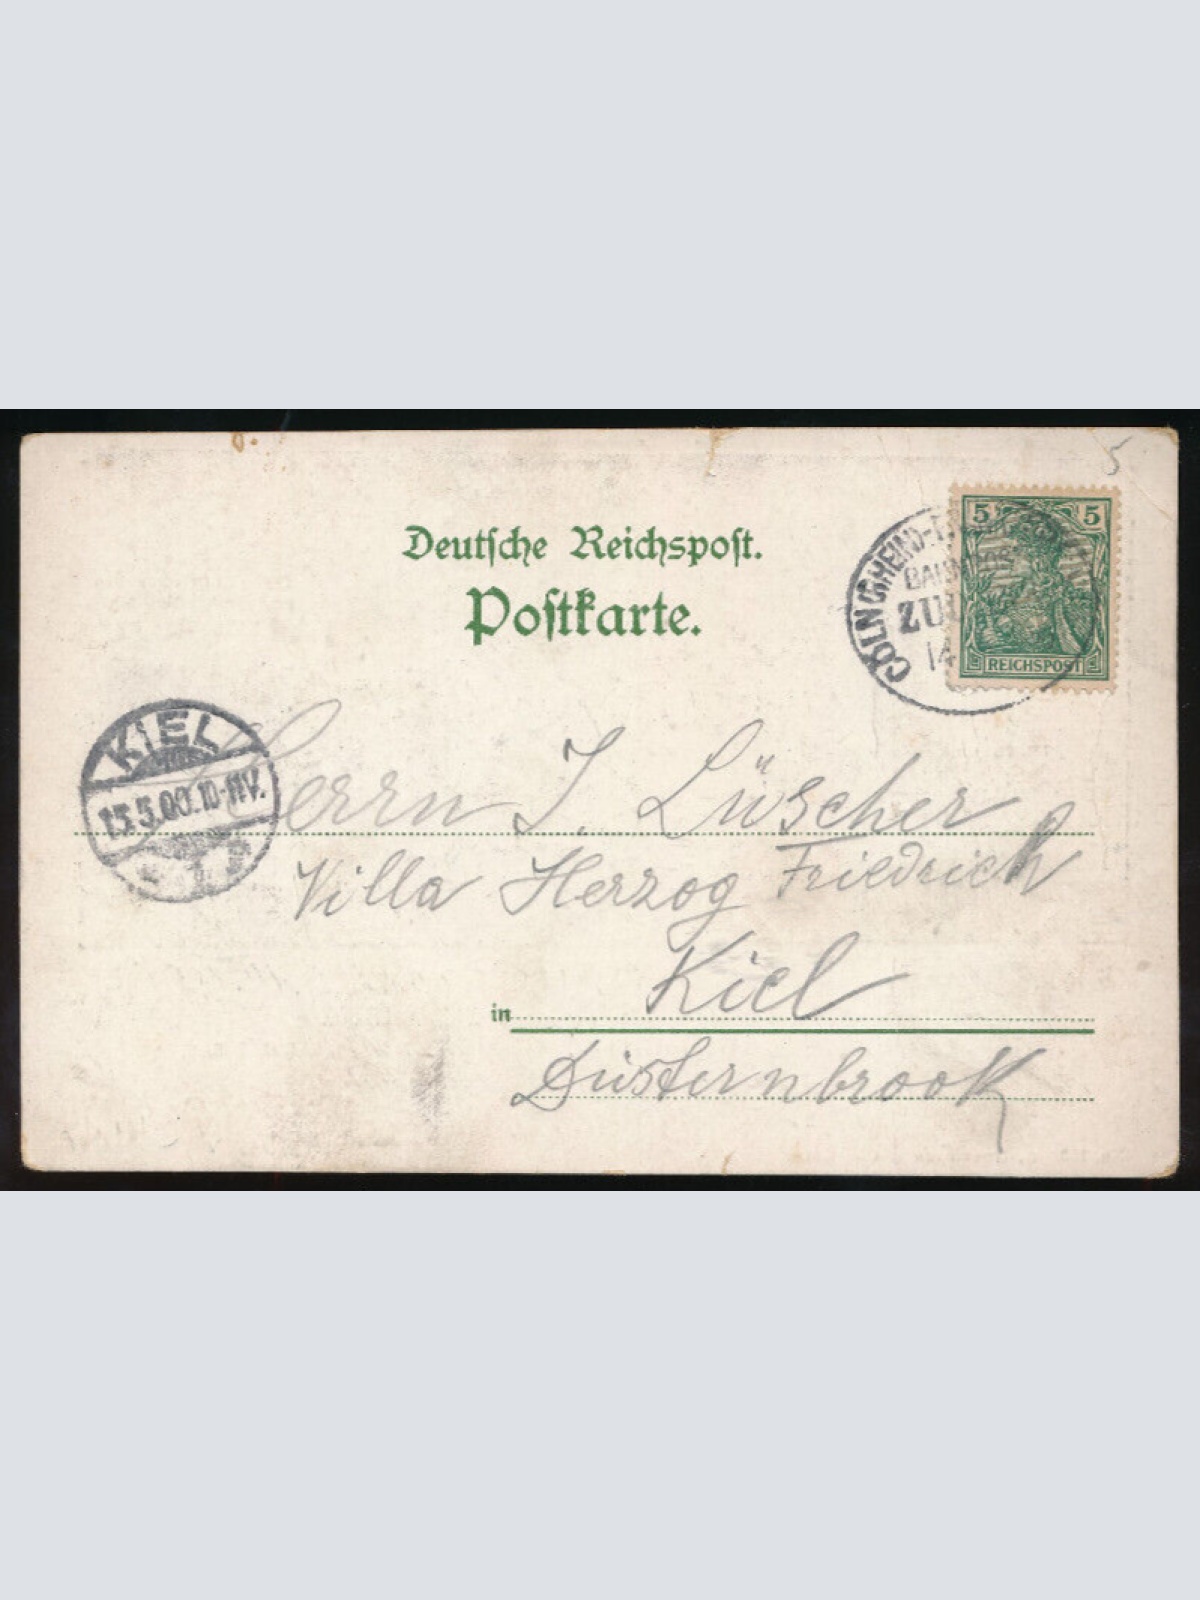 5
Deutsche Reichspost.
Postkarte.
5 5
REICHSPOST
CÖLN (RHEIN)-
ZU
14
KIEL
15.5.00.10-11V.
Herrn J. Lüscher
Villa Herzog Friedrich
in Kiel
Düsternbrook